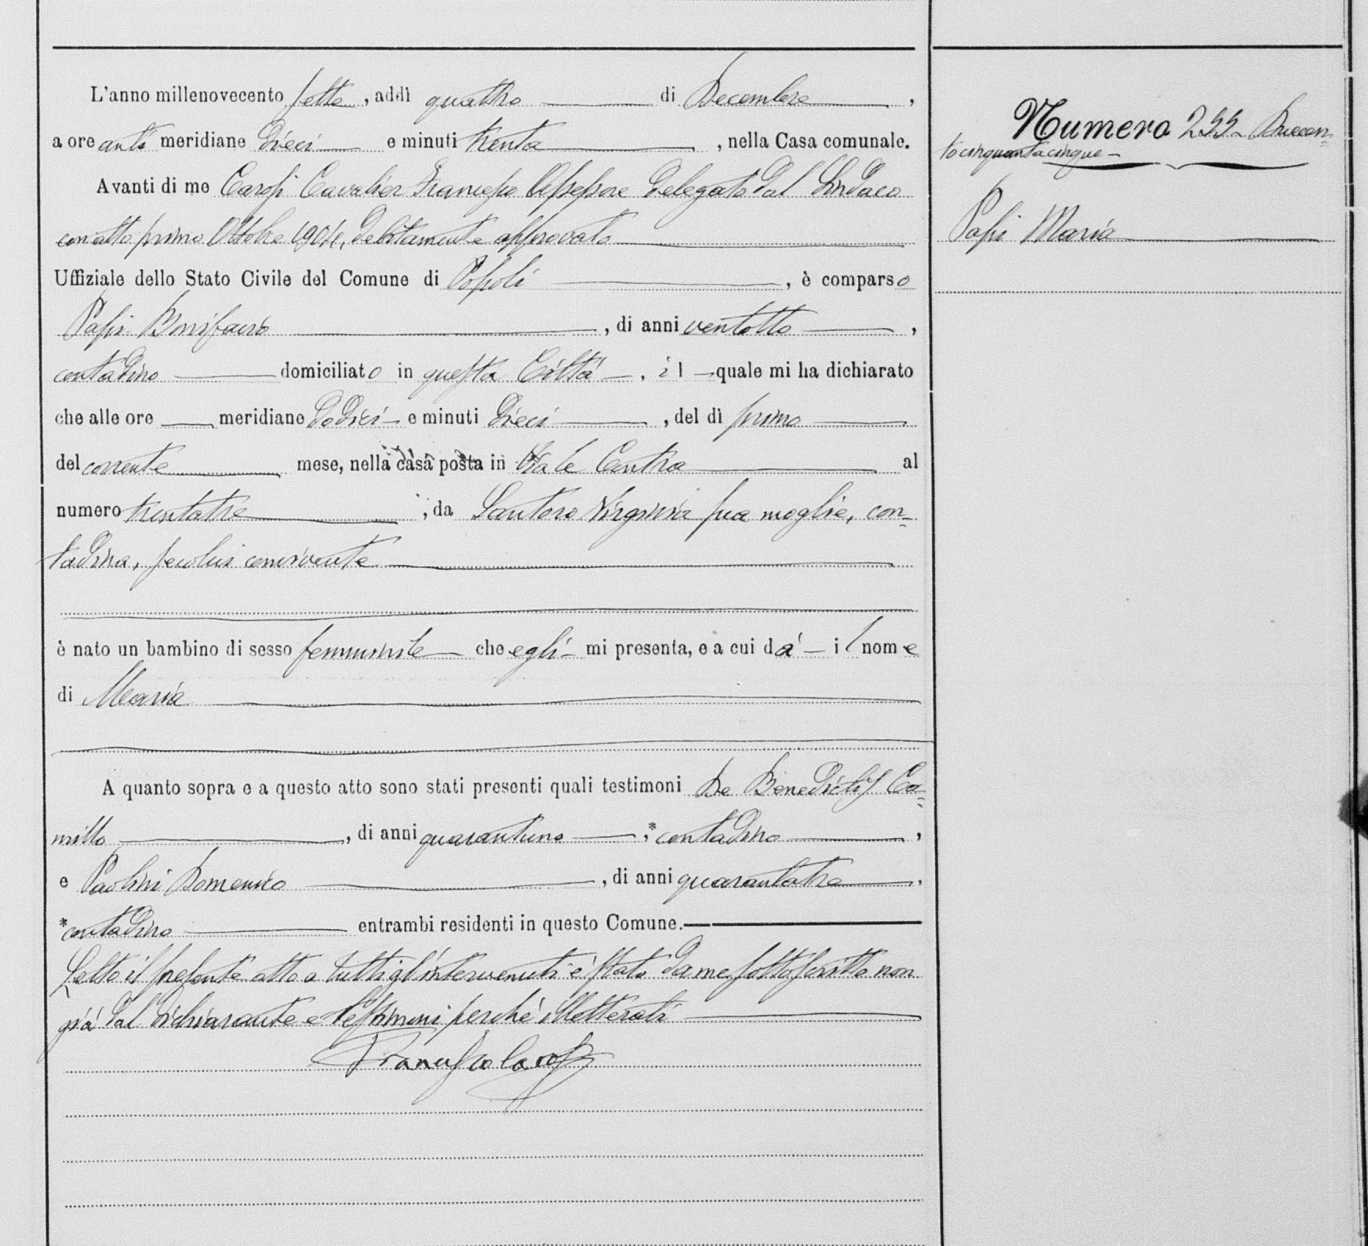 L'anno millenovecento sette, addì quattro di Decembre,
a ore anti meridiane dieci e minuti trenta, nella Casa comunale.
Avanti di me Carosi Cavalier Francesco Assessore delegato dal Sindaco
con atto primo Ottobre 1904, debitamente approvato
Uffiziale dello Stato Civile del Comune di Popoli, è comparso
Papi Bonifacio, di anni ventotto,
contadino domiciliato in questa Città, il quale mi ha dichiarato
che alle ore meridiane dodici e minuti dieci, del dì primo
del corrente mese, nella casa posta in al
numero trentatre, da Santoro Virginia sua moglie, con=
tadina, secolui convivente
è nato un bambino di sesso femminile che egli mi presenta, e a cui dà il nome
di Maria
A quanto sopra e a questo atto sono stati presenti quali testimoni De Benedictis Ca=
millo, di anni quarantuno, *contadino,
e Paolini Domenico, di anni quarantatre,
*contadino entrambi residenti in questo Comune.
Letto il presente atto a tutti gl'intervenuti è stato da me sottoscritto non
già dal dichiarante e testimoni perché illetterati
Francesco Carosi
Numero 255 Duecen=
tocinquantacinque
Papi Maria